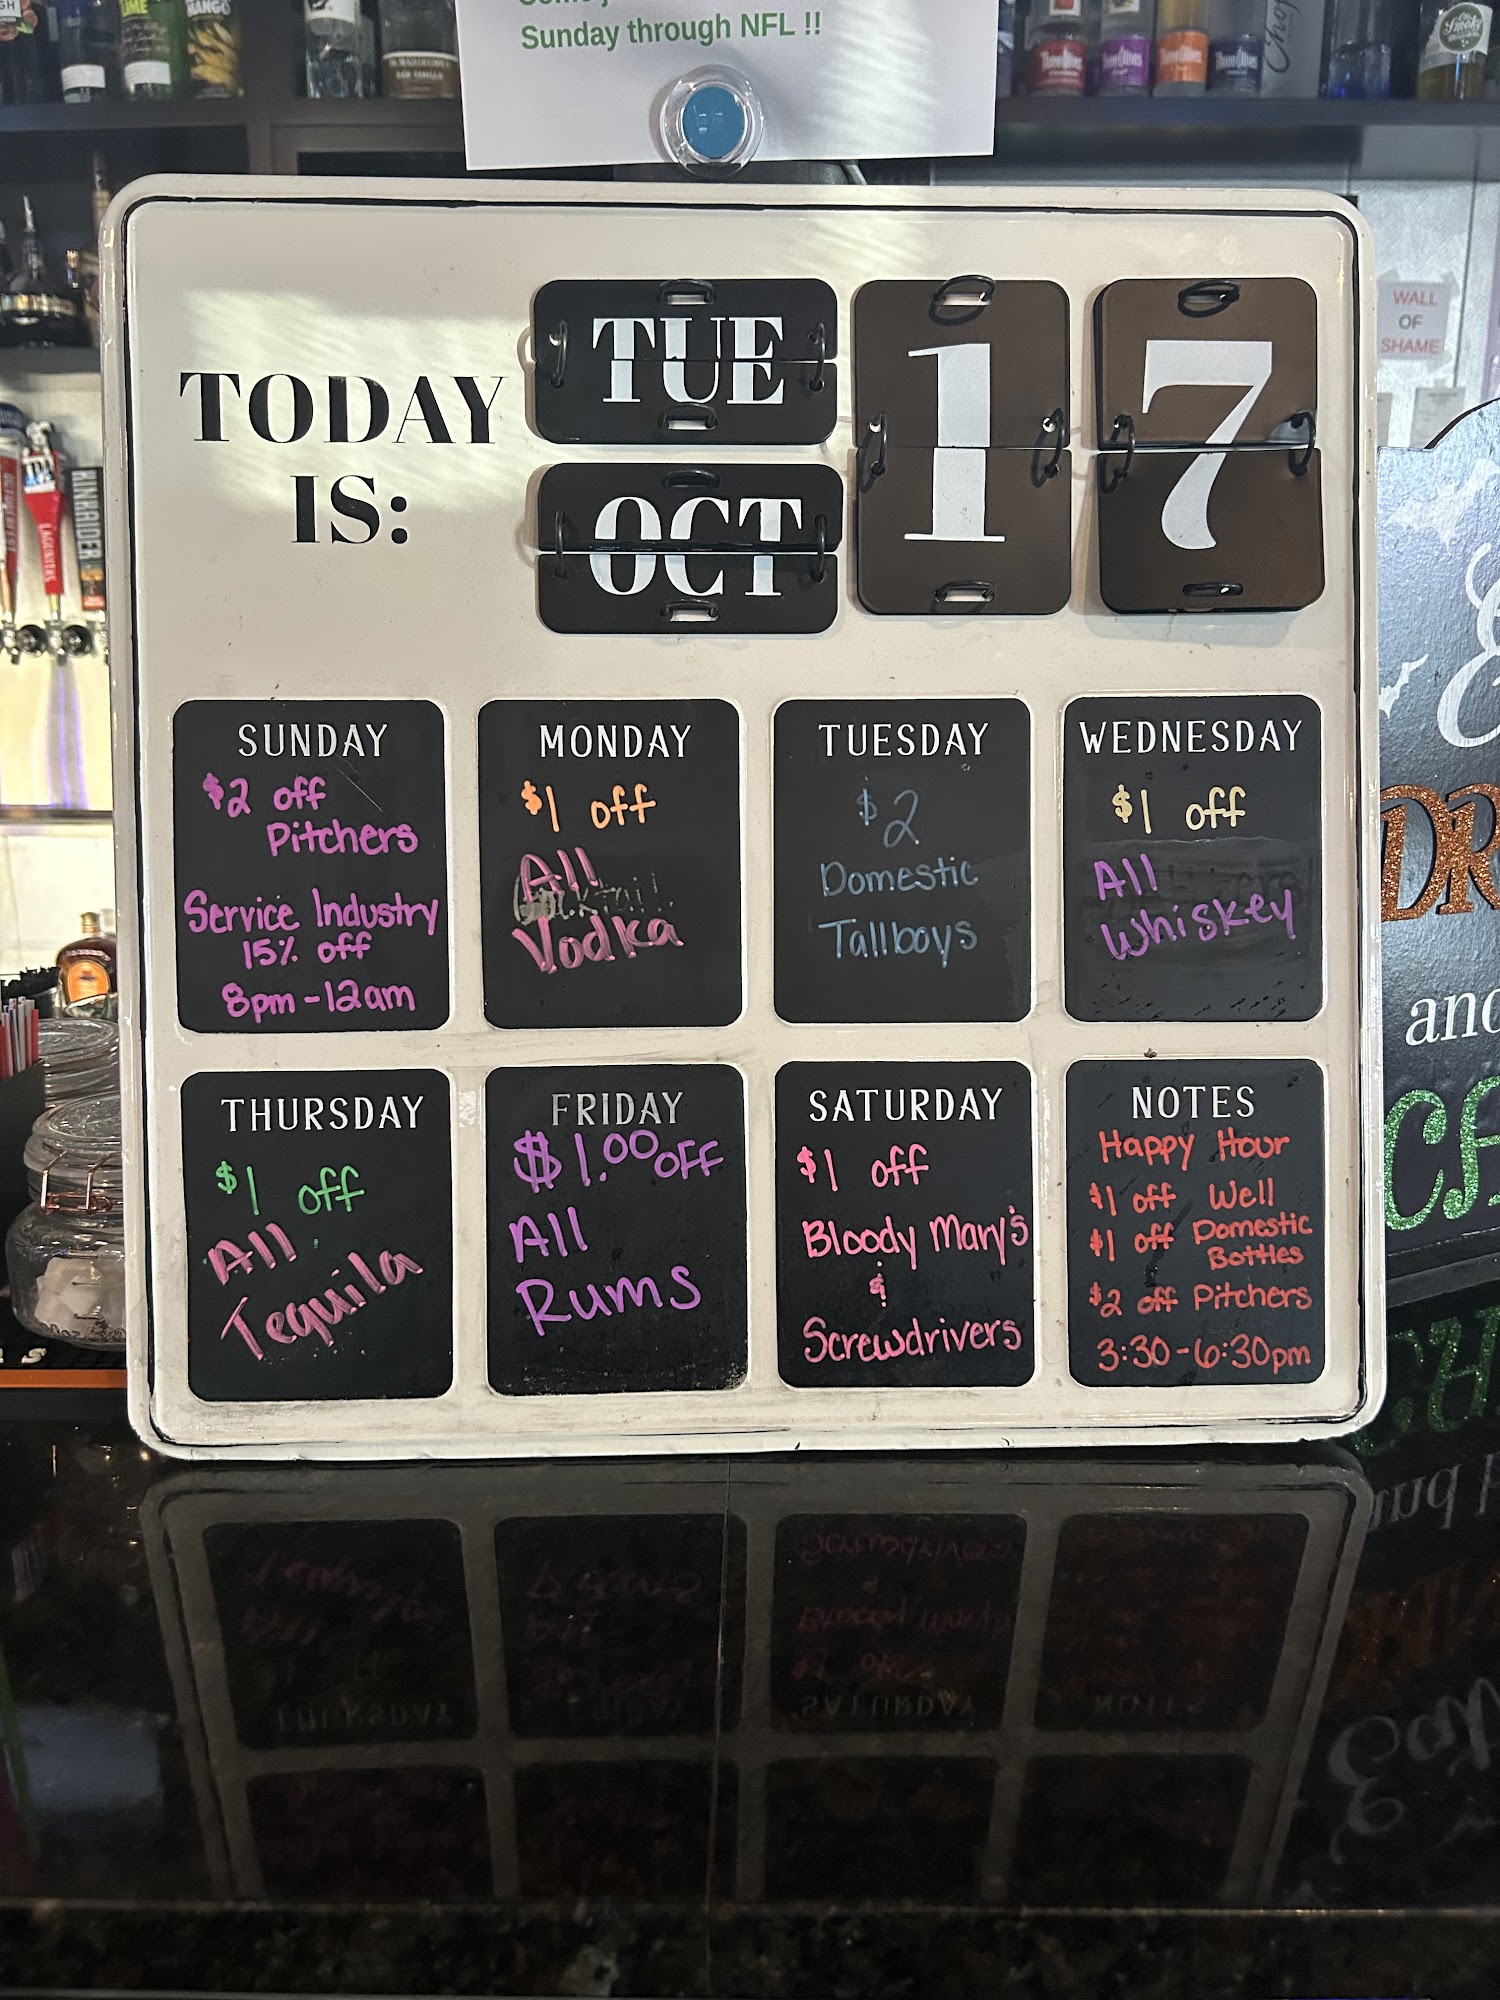 Sunday through NFL !!
WALL
OF
SHAME
TODAY
IS:
TUE
OCT
17
SUNDAY
$2 off
Pitchers
Service Industry
15% off
8pm-12am
MONDAY
$1 off
All
Vodka
TUESDAY
$2
Domestic
Tallboys
WEDNESDAY
$1 off
All
Whiskey
THURSDAY
$1 off
All
Tequila
FRIDAY
$1.00 OFF
All
Rums
SATURDAY
$1 off
Bloody Mary's
&
Screwdrivers
NOTES
Happy Hour
$1 off Well
$1 off Domestic
Bottles
$2 off Pitchers
3:30-6:30pm
and